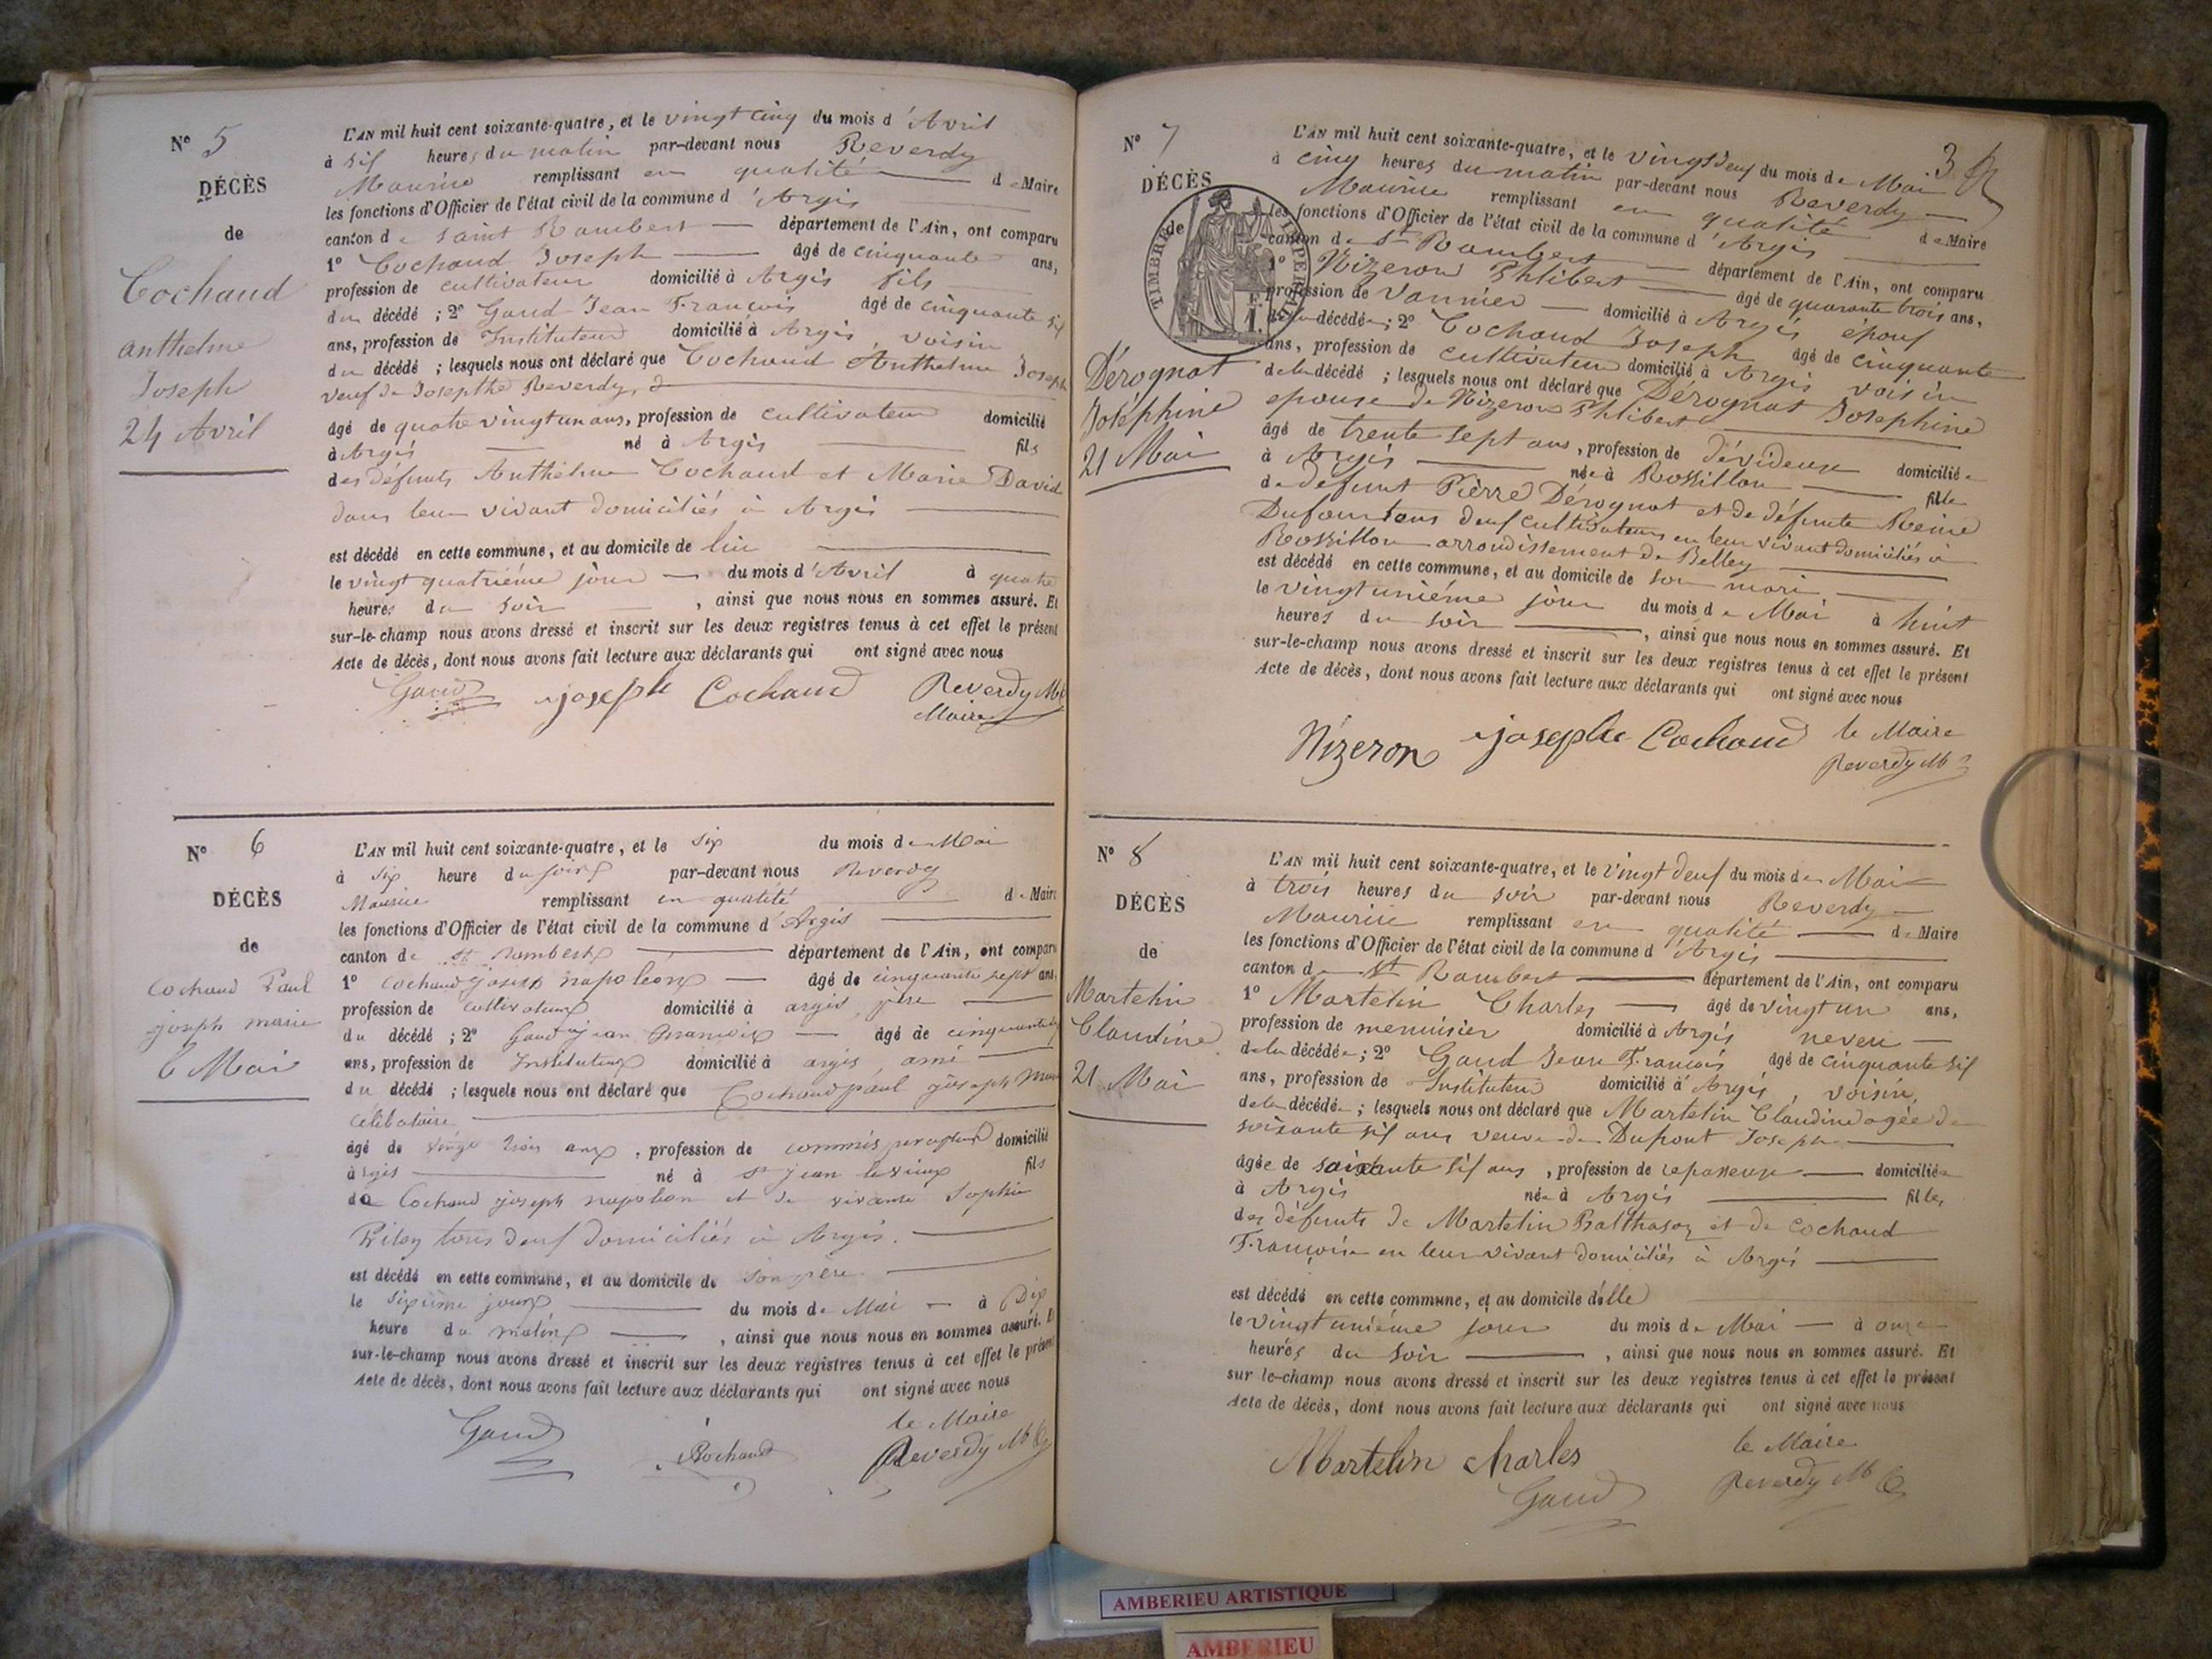 N° 5
DÉCÈS
de
Cochaud
Anthelme
Joseph
24 Avril
L'AN mil huit cent soixante-quatre, et le vingt cinq du mois d'Avril
à sif heures du matin par-devant nous Reverdy
Maurice remplissant en qualité de Maire
les fonctions d'Officier de l'état civil de la commune d'Argis
canton de Saint Rambert département de l'Ain, ont comparu
1° Cochaud Joseph âgé de cinquante ans,
profession de cultivateur domicilié à Argis fils
du décédé ; 2° Gaud Jean François âgé de cinquante sif
ans, profession de Instituteur domicilié à Argis, voisin
du décédé ; lesquels nous ont déclaré que Cochaud Anthelme Joseph
veuf de Josepthe Reverdy,
âgé de quatre vingt un ans, profession de cultivateur domicilié
à Argis né à Argis fils
des défunts Anthelme Cochaud et Marie David
dans leur vivant domiciliés à Argis
est décédé en cette commune, et au domicile de lui
le vingt quatrième jour du mois d'Avril à quatre
heures du soir, ainsi que nous nous en sommes assuré. Et
sur-le-champ nous avons dressé et inscrit sur les deux registres tenus à cet effet le présent
Acte de décès, dont nous avons fait lecture aux déclarants qui ont signé avec nous
Gaud joseph Cochaud Reverdy Mce
Maire
N° 6
DÉCÈS
de
Cochaud Paul
joseph marie
6 Mai
L'AN mil huit cent soixante-quatre, et le six du mois de Mai
à six heure du soir par-devant nous Reverdy
Maurice remplissant en qualité de Maire
les fonctions d'Officier de l'état civil de la commune d'Argis
canton de st Rambert département de l'Ain, ont comparu
1° Cochaud joseph napoléon âgé de cinquante sept ans,
profession de cultivateur domicilié à argis, père
du décédé ; 2° Gaud jean François âgé de cinquante
ans, profession de Instituteur domicilié à argis ami
du décédé ; lesquels nous ont déclaré que Cochaud paul joseph marie
célibataire
âgé de vingt trois ans, profession de commis percepteur domicilié
à rgis né à st jean le vieux fils
de Cochaud joseph napoléon et de vivante Sophie
tous deuf domiciliés à Argis.
est décédé en cette commune, et au domicile de son père
le sixième jour du mois de Mai à Dix
heure du matin, ainsi que nous nous en sommes assuré. Et
sur-le-champ nous avons dressé et inscrit sur les deux registres tenus à cet effet le présent
Acte de décès, dont nous avons fait lecture aux déclarants qui ont signé avec nous
le Maire
Gaud Cochaud Reverdy Mce
3
N° 7
DÉCÈS
de
TIMBRE IMPERIAL
Dérognat
Joséphine
21 Mai
L'AN mil huit cent soixante-quatre, et le vingt deuf du mois de Mai
à cinq heures du matin par-devant nous Reverdy
Maurice remplissant en qualité de Maire
les fonctions d'Officier de l'état civil de la commune d'Argis
canton de St Rambert département de l'Ain, ont comparu
1° Nizeron Phlibert âgé de quarante trois ans,
profession de Vannier domicilié à Argis époux
de la décédée ; 2° Cochaud Joseph âgé de cinquante
ans, profession de cultivateur domicilié à Argis voisin
de la décédé ; lesquels nous ont déclaré que Dérognat Josephine
epouse de Nizeron Phlibert
âgé de trente sept ans, profession de dévideuse domiciliée
à Argis née à Rossillon fille
de défunt Pierre Dérognat et de défunte Reine
Dufour tous deuf cultivateurs en leur vivant domiciliés à
Rossillon arrondissement de Belley
est décédé en cette commune, et au domicile de son mari
le vingt unième jour du mois de Mai à huit
heures du soir, ainsi que nous nous en sommes assuré. Et
sur-le-champ nous avons dressé et inscrit sur les deux registres tenus à cet effet le présent
Acte de décès, dont nous avons fait lecture aux déclarants qui ont signé avec nous
Nizeron joseph Cochaud le Maire
Reverdy Mce
N° 8
DÉCÈS
de
Martelin
Claudine
21 Mai
L'AN mil huit cent soixante-quatre, et le vingt deuf du mois de Mai
à trois heures du soir par-devant nous Reverdy
Maurice remplissant en qualité de Maire
les fonctions d'Officier de l'état civil de la commune d'Argis
canton de St Rambert département de l'Ain, ont comparu
1° Martelin Charles âgé de vingt un ans,
profession de menuisier domicilié à Argis neveu
de la décédée ; 2° Gaud Jean François âgé de cinquante sif
ans, profession de Instituteur domicilié à Argis, voisin,
de la décédée ; lesquels nous ont déclaré que Martelin Claudine agée de
soixante sif ans veuve de Dupont Joseph
âgée de soixante sif ans, profession de repasseuse domiciliée
à Argis née à Argis filles,
des défunts de Martelin Balthasar et de Cochaud
Françoise en leur vivant domiciliés à Argis
est décédé en cette commune, et au domicile d'elle
le vingt unième jour du mois de Mai à onze
heures du soir, ainsi que nous nous en sommes assuré. Et
sur le-champ nous avons dressé et inscrit sur les deux registres tenus à cet effet le présent
Acte de décès, dont nous avons fait lecture aux déclarants qui ont signé avec nous
Martelin charles le Maire
Gaud Reverdy Mce
AMBERIEU ARTISTIQUE
AMBERIEU